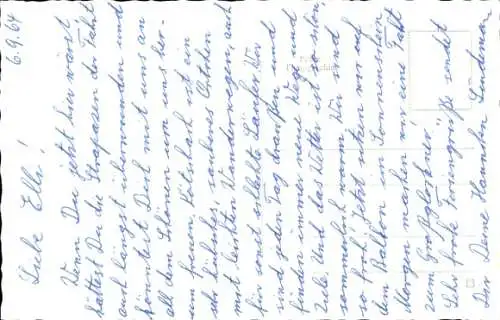 6.9.64
Liebe Elli!
Wenn Du jetzt hier wärst
hättest Du die Strapazen der Fahrt
auch längst überwunden und
könntest Dich mit uns an
all dem Schönen um uns her-
um freuen. Kitzbach ist ein
sehr hübsches, sauberes Örtchen
mit leichten Wanderwegen, auch
für sonst schlechte Läufer. Wir
sind jeden Tag draußen und
finden immer neue Wege und
Ziele. Und das Wetter ist so schön,
sommerlich warm. Wir sind
so froh! Jetzt sitzen wir auf
dem Balkon im Sonnenschein
Morgen machen wir eine Fahrt
zum "Großglockner".
Sehr frohe Feriengrüße sendet
Dir Deine Hannchen Lindenau